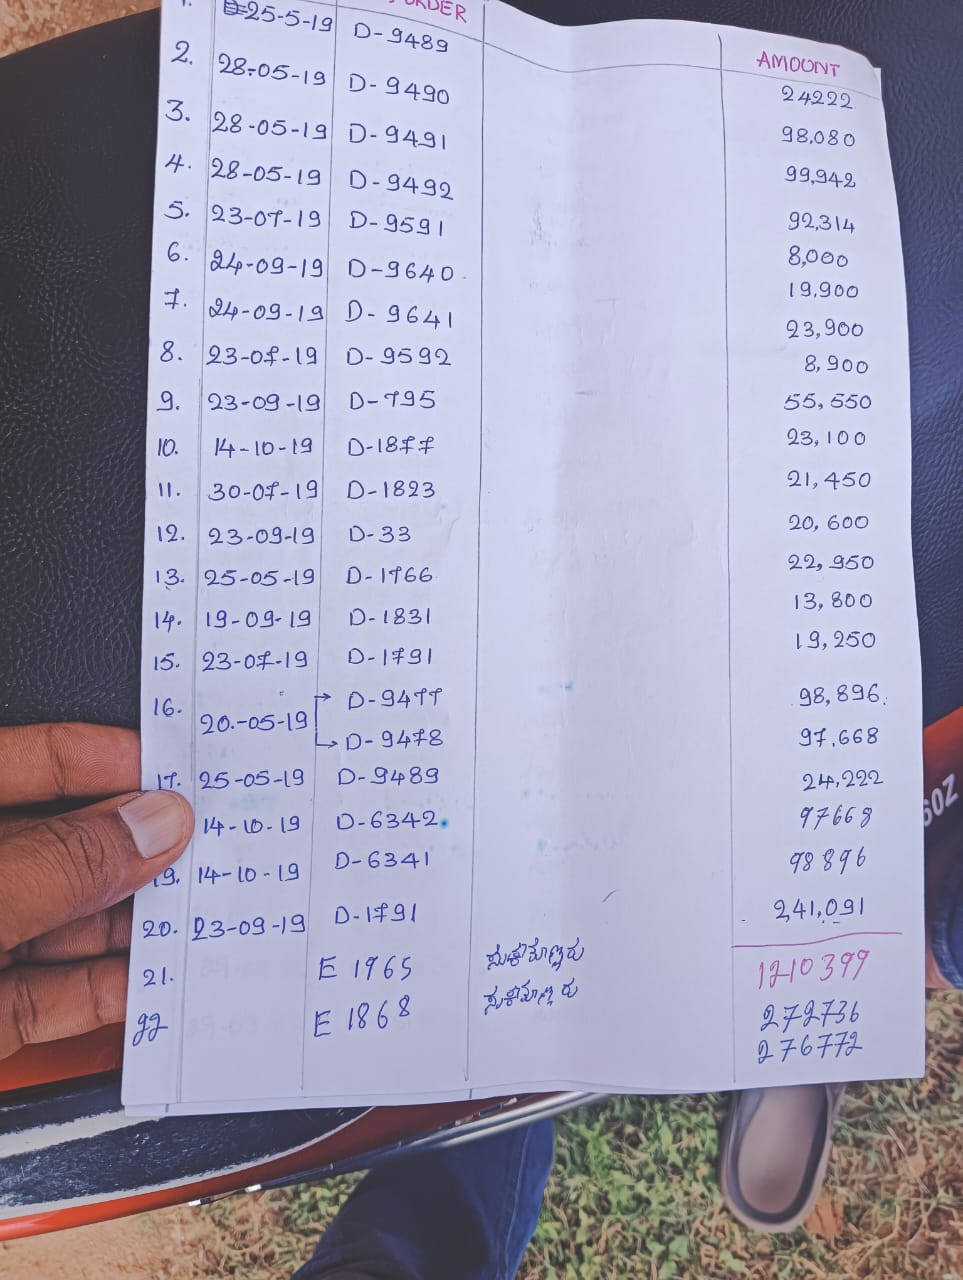 ORDER AMOUNT
1. 25-5-19 D-9489 24222
2. 28-05-19 D-9490 98,080
3. 28-05-19 D-9491 99,942
4. 28-05-19 D-9492 92,314
5. 23-07-19 D-9591 8,000
6. 24-09-19 D-9640 19,900
7. 24-09-19 D-9641 23,900
8. 23-07-19 D-9592 8,900
9. 23-09-19 D-795 55,550
10. 14-10-19 D-1877 23,100
11. 30-07-19 D-1823 21,450
12. 23-09-19 D-33 20,600
13. 25-05-19 D-1766 22,950
14. 19-09-19 D-1831 13,800
15. 23-07-19 D-1791 19,250
16. 20-05-19 D-9477 98,896
D-9478 97,668
17. 25-05-19 D-9489 24,222
14-10-19 D-6342 97668
19. 14-10-19 D-6341 98896
20. 23-09-19 D-1791 241,091
1210399
21. E 1965 272736
22 E 1868 276772
60Z